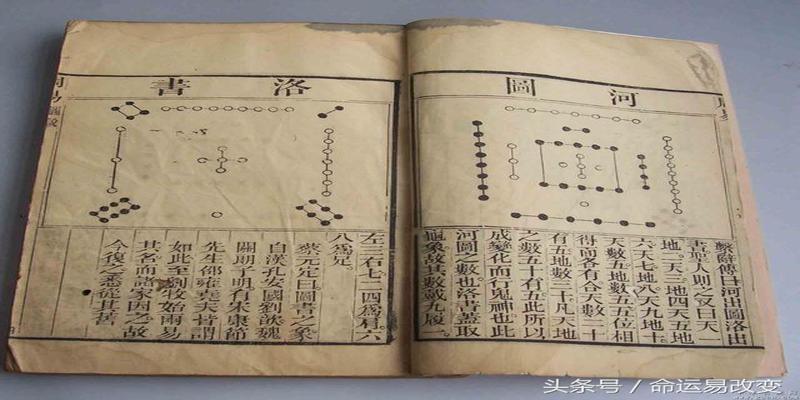 周易
河圖
繫辭傳曰河出圖洛出
書聖人則之又曰天一
地二天三地四天五地
六天七地八天九地十
天數五地數五五位相
得而各有合天數二十
有五地數三十凡天地
之數五十有五此所以
成變化而行鬼神也此
河圖之數也洛書蓋取
龜象故其數戴九履一
洛書
左三右七二四爲肩六
八爲足
蔡元定曰圖書之象
自漢孔安國劉歆魏
關朗子明有宋康節
先生邵雍堯夫皆謂
如此至劉牧始兩易
其名而諸家因之故
今復之悉從其舊
周易
头条号/命运易改变